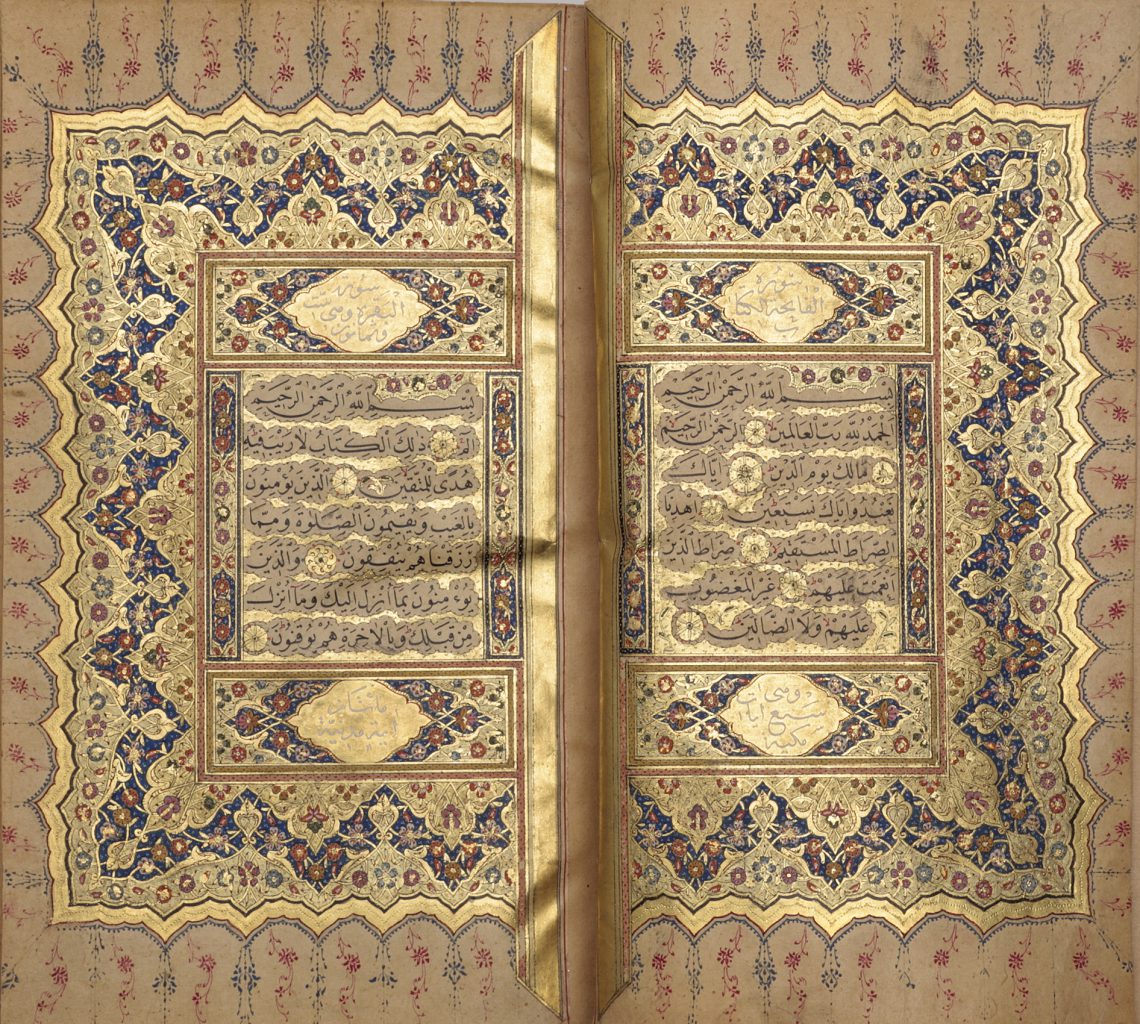 سورة
الفاتحة الكتا
ب
بِسْمِ اللّٰهِ الرَّحْمٰنِ الرَّحِيمِ
اَلْحَمْدُ لِلّٰهِ رَبِّ الْعَالَمِينَ الرَّحْمٰنِ الرَّحِيمِ
مَالِكِ يَوْمِ الدِّينِ اِيَّاكَ
نَعْبُدُ وَاِيَّاكَ نَسْتَعِينُ اِهْدِنَا
الصِّرَاطَ الْمُسْتَقِيمَ صِرَاطَ الَّذِينَ
اَنْعَمْتَ عَلَيْهِمْ غَيْرِ الْمَغْضُوبِ
عَلَيْهِمْ وَلَا الضَّالِّينَ
وهي
سبع ايات
مكية
سورة
البقرة وهي ست
وثمانون
بِسْمِ اللّٰهِ الرَّحْمٰنِ الرَّحِيمِ
الٓمٓ ذٰلِكَ الْكِتَابُ لَا رَيْبَ فِيهِ
هُدًى لِلْمُتَّقِينَ الَّذِينَ يُؤْمِنُونَ
بِالْغَيْبِ وَيُقِيمُونَ الصَّلٰوةَ وَمِمَّا
رَزَقْنَاهُمْ يُنْفِقُونَ وَالَّذِينَ
يُؤْمِنُونَ بِمَا اُنْزِلَ اِلَيْكَ وَمَا اُنْزِلَ
مِنْ قَبْلِكَ وَبِالْاٰخِرَةِ هُمْ يُوقِنُونَ
مائتان
اية مدنية